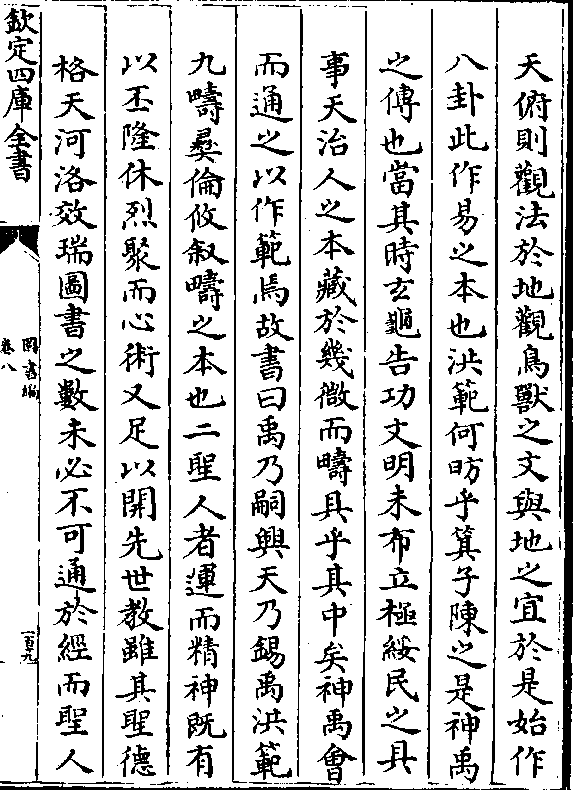 天俯則觀法於地觀鳥獸之文與地之宜於是始作
八卦此作易之本也洪範何昉乎箕子陳之是神禹
之傳也當其時玄龜告功文明未布立極綏民之具
事天治人之本藏於幾微而疇具乎其中矣神禹會
而通之以作範焉故書曰禹乃嗣興天乃錫禹洪範
九疇彛倫攸叙疇之本也二聖人者運而精神既有
以丕隆休烈聚而心術又足以開先世教雖其聖德
格天河洛效瑞圖書之數未必不可通於經而聖人
欽定四庫全書
圖書編
卷八
一百九